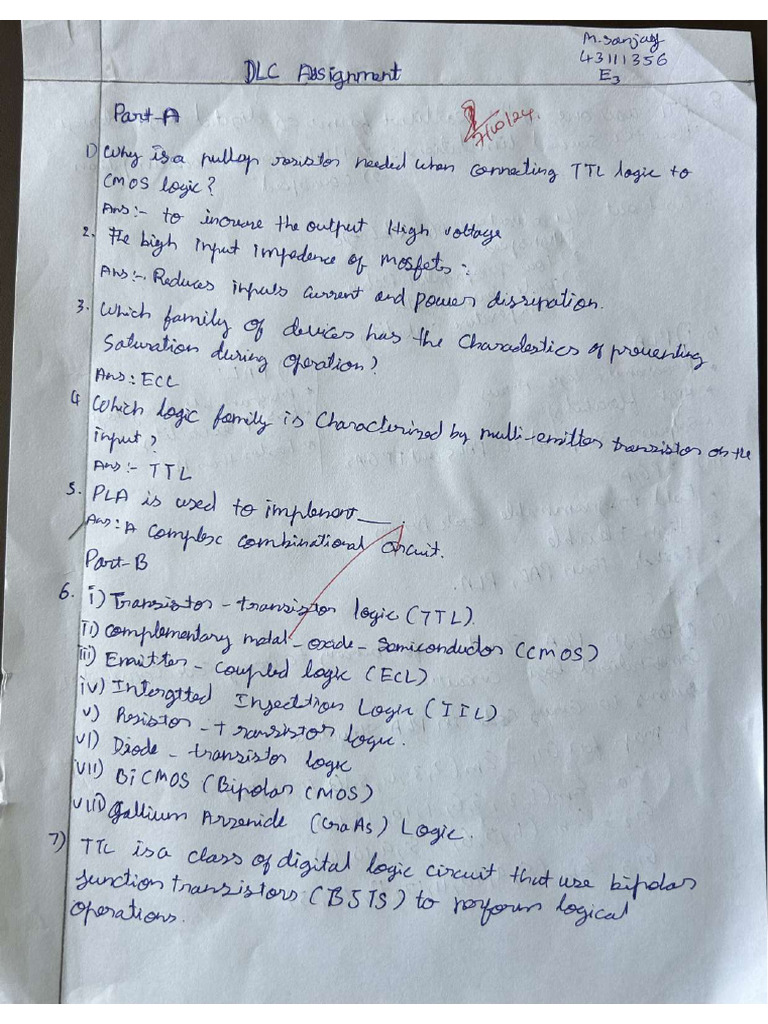 M.Sanjay
43111356
E3
DLC Assignment
7/10/24.
Part-A
1) Why is a pullup resistor needed when connecting TTL logic to
CMOS logic?
Ans:- to increase the output High voltage
2. The high input impedence of mosfets:
Ans:-. Reduces inputs current and power dissipation.
3. Which family of devices has the Charadestics of preventing
Saturation during operation?
Ans: ECL
4 Which logic family is Characterized by multi-emitter transistor on the
input?
Ans:- TTL
5. PLA is used to implement __.
Ans: A complex combinational circuit.
Part-B
6. i) Transistor-transistor logic (TTL).
ii) Complementary metal-oxide-Semiconductor (CMOS)
iii) Emitter-coupled logic (ECL)
iv) Intergtted Injecttion Logic (IIL)
v) Resistor-transistor logic.
vi) Diode-transistor logic
vii) BiCMOS (Bipolar CMOS)
viii) Gallium Arsenide (GaAs) Logic.
7) TTL is a class of digital logic circuit that use bipolar
junction transistors (BJTS) to perform logical
operations.